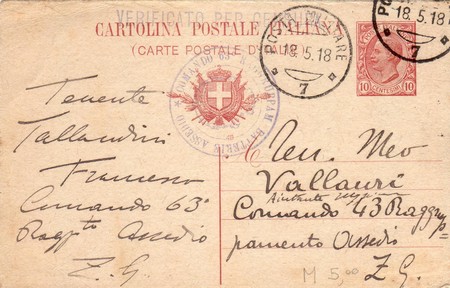 VERIFICATO PER CENSURA
CARTOLINA POSTALE ITALIANA
(CARTE POSTALE D'ITALIE)
POSTA MILITARE
18.5.18
7
18.5.18
7
10 CENTESIMI 10
COMANDO 63° RAGGRUPPAM. BATTERIE ASSEDIO
Tenente
Tallandini
Francesco
Comando 63°
Ragg.to Assedio
Z. G.
Ten. Meo
Vallauri
Aiutante
Comando 43 Raggrup-
pamento Assedio
Z. G.
M 5,00